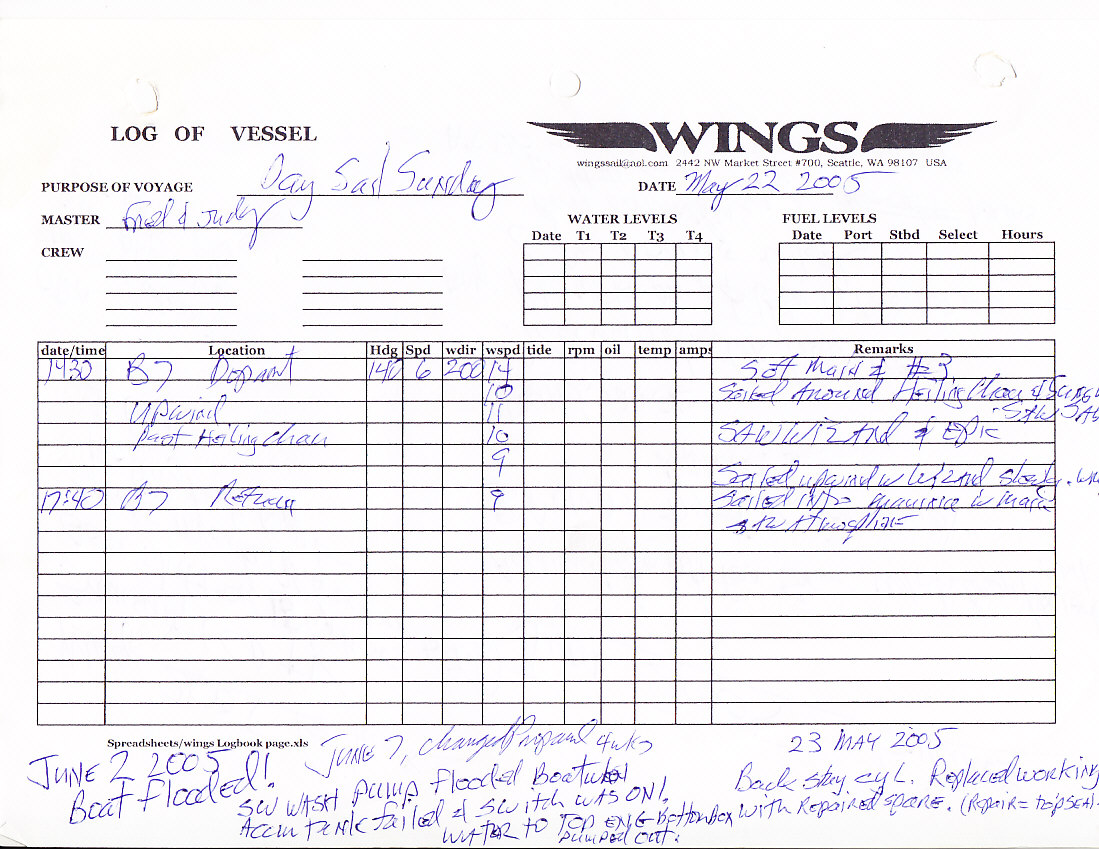 LOG OF VESSEL
WINGS
wingssail@aol.com 2442 NW Market Street #700, Seattle, WA 98107 USA
PURPOSE OF VOYAGE Day Sail Sunday
DATE May 22 2005
MASTER Fred & Judy
WATER LEVELS FUEL LEVELS
Date T1 T2 T3 T4 Date Port Stbd Select Hours
CREW
date/time Location Hdg Spd wdir wspd tide rpm oil temp amps Remarks
1430 B7 Depart 140 6 200 14 Set Main & #3
10 Sailed Around Heiling Chau &
Upwind 11 SAW
Past Heiling Chau 10 SAW Wizard & Epic
9
Sailed upwind w Wizard
17:40 B7 Return 9 Sailed into marina w main
Spreadsheets/wings Logbook page.xls
JUNE 7, changed Propane 4 wks
23 MAY 2005
JUNE 2 2005!
Boat flooded!
SW WASH PUMP flooded Boat when
ACCUM TANK failed & SWITCH WAS ON!
WATER TO TOP ENG Bottom
PUMPED OUT.
Back stay cyl. Replaced working
with Repaired spare. (Repair = top SEAL